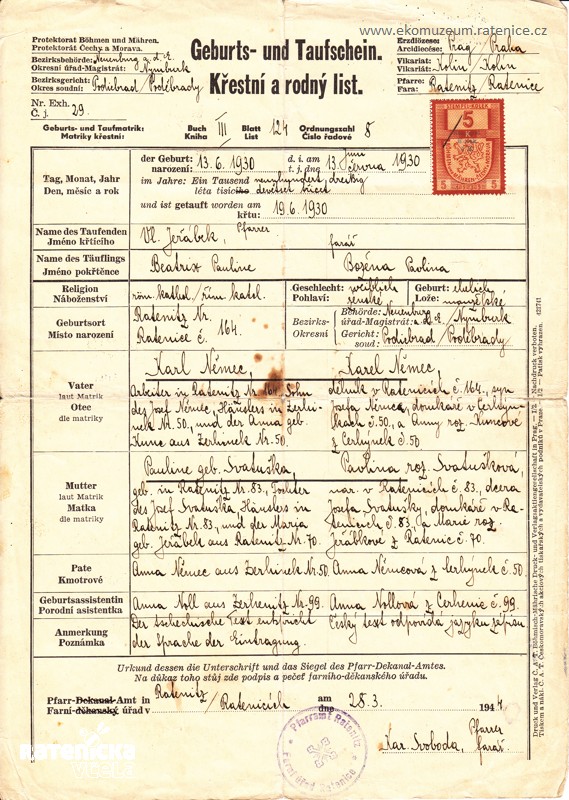 www.ekomuzeum.ratenice.cz
Protektorat Böhmen und Mähren.
Protektorát Čechy a Morava.
Bezirksbehörde: Neuenburg a. d. E.
Okresní úřad-Magistrát: Nymburk
Bezirksgericht: Podiebrad
Okres soudní: Poděbrady
Nr. Exh.
Č. j. 29.
Geburts- und Taufschein.
Křestní a rodný list.
Erzdiözese: Prag / Praha
Arcidiecése:
Vikariat: Kolin / Kolín
Vikariát:
Pfarre: Ratenitz / Ratenice
Fara:
Geburts- und Taufmatrik:
Matriky křestní:
Buch Kniha III Blatt List 124 Ordnungszahl Číslo řadové 8
5
K
STEMPEL-KOLEK
5 5
Tag, Monat, Jahr
Den, měsíc a rok
der Geburt: narození: 13. 6. 1930 d. i. am t. j. dne 13. Juni června 1930
im Jahre: Ein Tausend neunhundert dreißig
léta tisícího devětset třicet
und ist getauft worden am
křtu: 19. 6. 1930
Name des Taufenden
Jméno křtícího
Vl. Jeřábek, Pfarrer farář
Name des Täuflings
Jméno pokřtěnce
Beatrix Pauline Božena Pavlina
Religion
Náboženství
röm. kathol. / řím. katol.
Geschlecht: weiblich
Pohlaví: ženské
Geburt: ehelich
Lože: manželské
Geburtsort
Místo narození
Ratenitz Nr.
Ratenice č. 164.
Bezirks-
Okresní
Behörde: Neuenburg
úřad-Magistrát: a. d. E. / Nymburk
Gericht: Podiebrad / Poděbrady
soud:
Vater
laut Matrik
Otec
dle matriky
Karl Němec,
Arbeiter in Ratenitz Nr. 164, Sohn
des Josef Němec, Häuslers in Zerhi-
nek Nr. 50, und der Anna geb.
Kunc aus Zerhinek Nr. 50.
Karel Němec,
dělník v Ratenicích č. 164, syn
Josefa Němca, domkáře v Cerhýn-
kách č. 50, a Anny roz. Kuncové
z Cerhýnek č. 50
Mutter
laut Matrik
Matka
dle matriky
Pauline geb. Svatuška,
geb. in Ratenitz Nr. 83, Tochter
des Josef Svatuška, Häuslers in
Ratenitz Nr. 83, und der Marja
geb. Jeřábek aus Ratenitz Nr. 70.
Pavlina roz. Svatušková,
nar. v Ratenicích č. 83, dcera
Josefa Svatušky, domkáře v Ra-
tenicích č. 83, a Marie roz.
Jeřábkové z Ratenic č. 70.
Pate
Kmotrové
Anna Němec aus Zerhinek Nr. 50. Anna Němcová z Cerhýnek č. 50.
Geburtsassistentin
Porodní asistentka
Anna Noll aus Zerhenitz Nr. 99. Anna Nollová z Cerhenic č. 99.
Anmerkung
Poznámka
Der tschechische Text entspricht
der Sprache der Eintragung.
Český text odpovídá jazyku zápisu.
Urkund dessen die Unterschrift und das Siegel des Pfarr-Dekanal-Amtes.
Na důkaz toho stůj zde podpis a pečeť farního-děkanského úřadu.
Pfarr-Dekanal-Amt in Ratenitz
Farní-děkanský úřad v Ratenicích
am
dne 28. 3. 1944
Pfarramt Ratenitz
Farní úřad Ratenice
Kar. Svoboda, Pfarrer farář.
RATENICKÁ
Druck und Verlag C. A. T. Böhmisch-Mährische Druck- und Verlagsaktiengesellschaft in Prag. — 1/2 — Nachdruck verboten.
Tiskem a nákl. C. A. T. Českomoravských akciových tiskařských a vydavatelských podniků v Praze. — 1/2 — Patisk vyhrazen.
422741